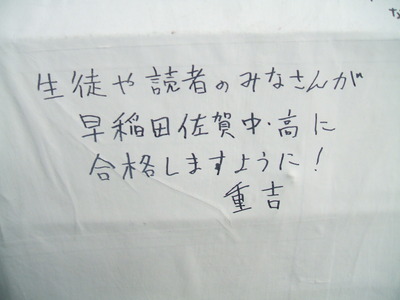 生徒や読者のみなさんが
早稲田佐賀中・高に
合格しますように！
重吉